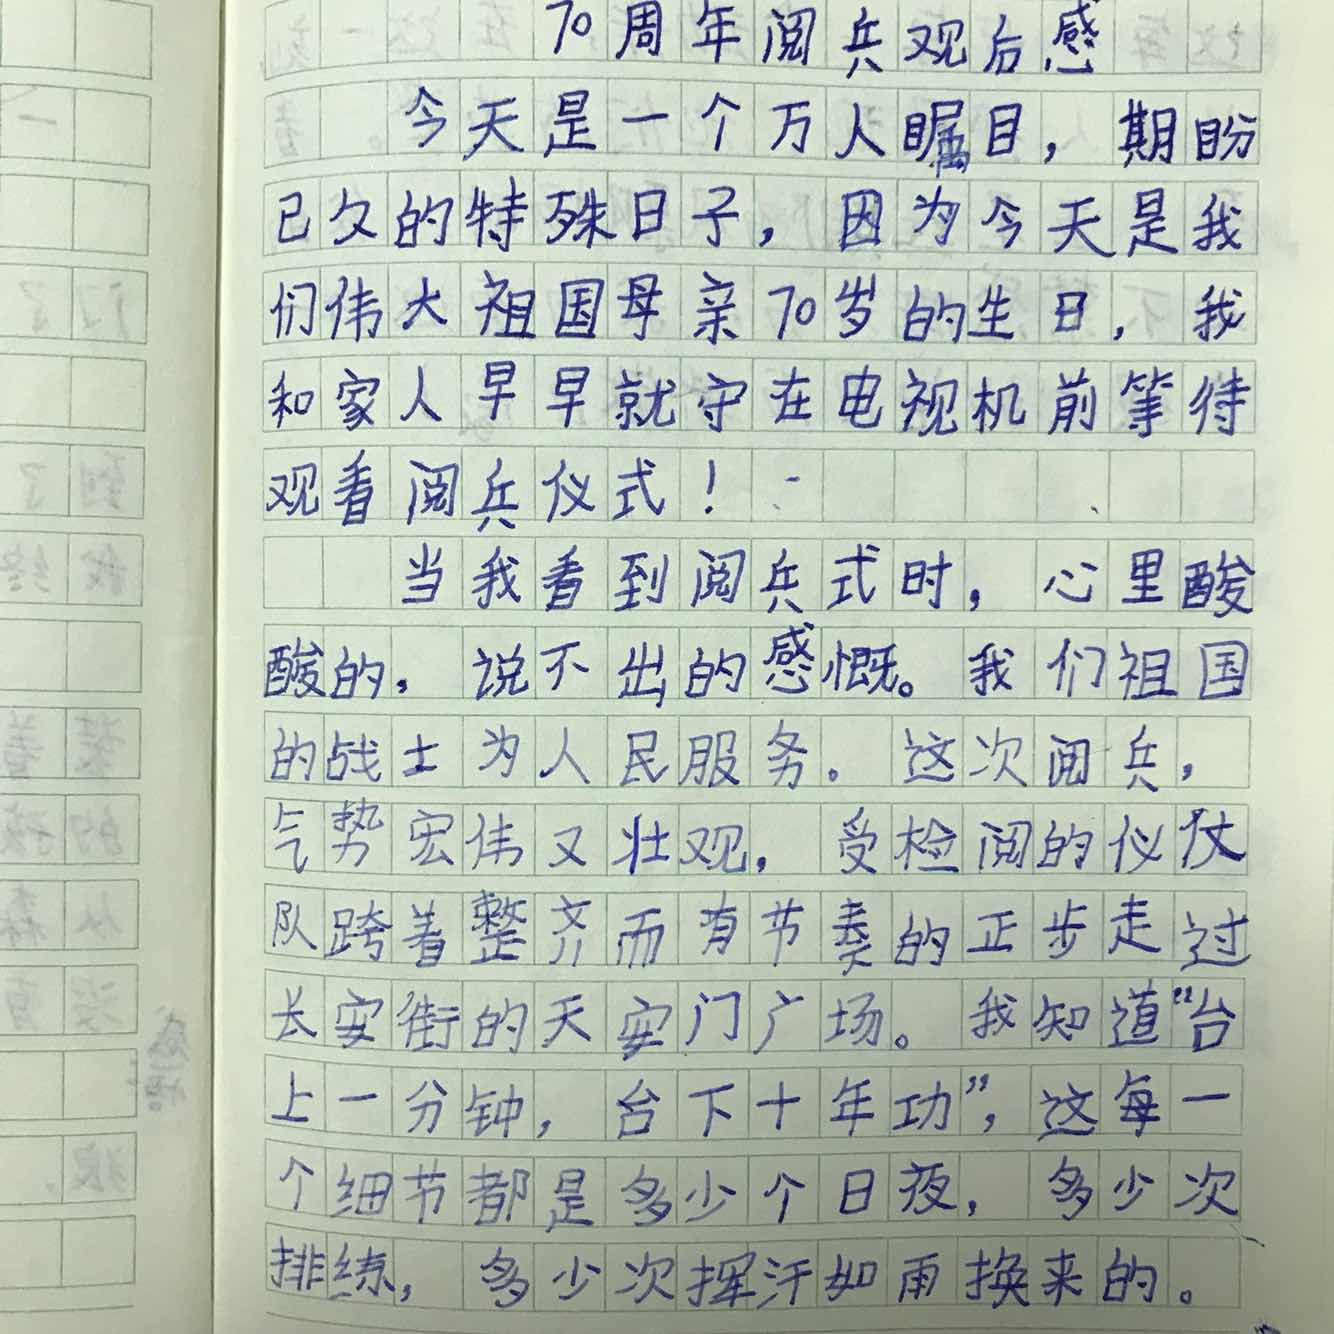 70周年阅兵观后感
今天是一个万人瞩目，期盼
已久的特殊日子，因为今天是我
们伟大祖国母亲70岁的生日，我
和家人早早就守在电视机前等待
观看阅兵仪式！
当我看到阅兵式时，心里酸
酸的，说不出的感慨。我们祖国
的战士为人民服务。这次阅兵，
气势宏伟又壮观，受检阅的仪仗
队跨着整齐而有节奏的正步走过
长安街的天安门广场。我知道“台
上一分钟，台下十年功”，这每一
个细节都是多少个日夜，多少次
排练，多少次挥汗如雨换来的。